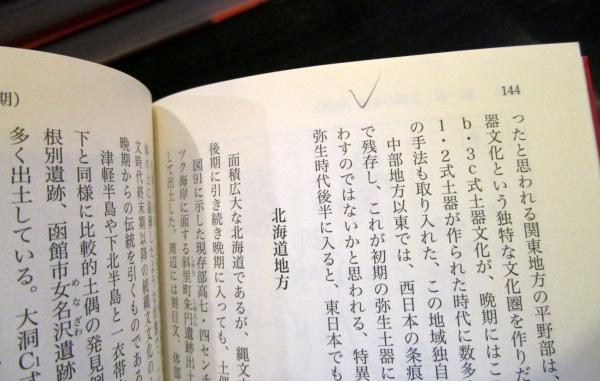 144
ったと思われる関東地方の平野部は、
器文化という独特な文化圏を作りだ
b・3c式土器文化が、晩期にはこ
1・2式土器が作られた時代に数多
の手法も取り入れた、この地域独自
中部地方以東では、西日本の条痕
で残存し、これが初期の弥生土器に
わすのではないかと思われる、特異
弥生時代後半に入ると、東日本でも
北海道地方
面積広大な北海道であるが、縄文
後期に引き続き晩期に入っても、土偶
図91に示した現存部高七・四センチ
ツク海岸に面する斜里町朱円遺跡出土
して出土した。周辺には刺目文、体部
文時代終末期以降の続縄文文化の
晩期からの伝統を引くものである
津軽半島や下北半島と一衣帯
下と同様に比較的土偶の発見例
根別遺跡、函館市女名沢遺跡
多く出土している。大洞C1式
期）